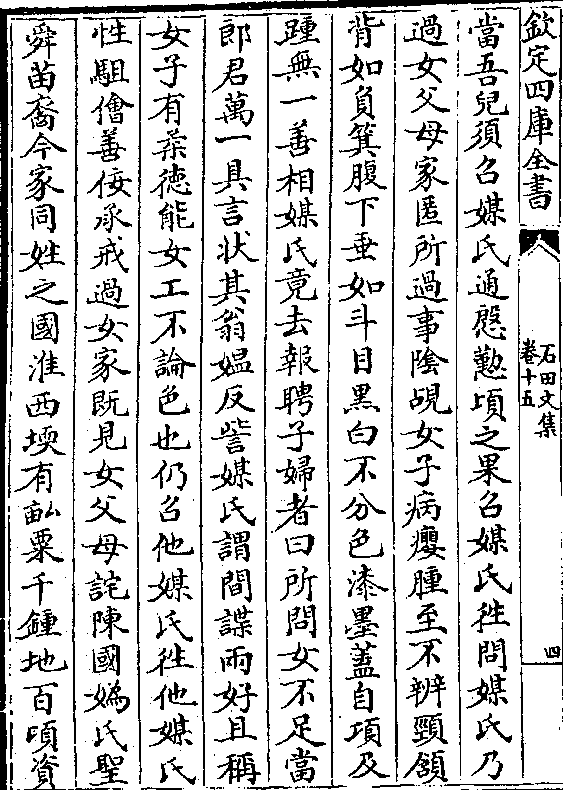 欽定四庫全書
石田文集
卷十五
四
當吾兒須召媒氏通慇懃頃之果召媒氏徃問媒氏乃
過女父母家匿所過事隂覘女子病癭腫至不辨頸頷
背如負箕腹下垂如斗目黒白不分色漆墨蓋自項及
踵無一善相媒氏竟去報聘子婦者曰所問女不足當
郎君萬一具言状其翁媪反訾媒氏謂間諜兩好且稱
女子有柔徳能女工不論色也仍召他媒氏徃他媒氏
性駔儈善佞承戒過女家既見女父母詫陳國媯氏聖
舜苗裔今家同姓之國淮西堧有畝粟千鍾地百頃資